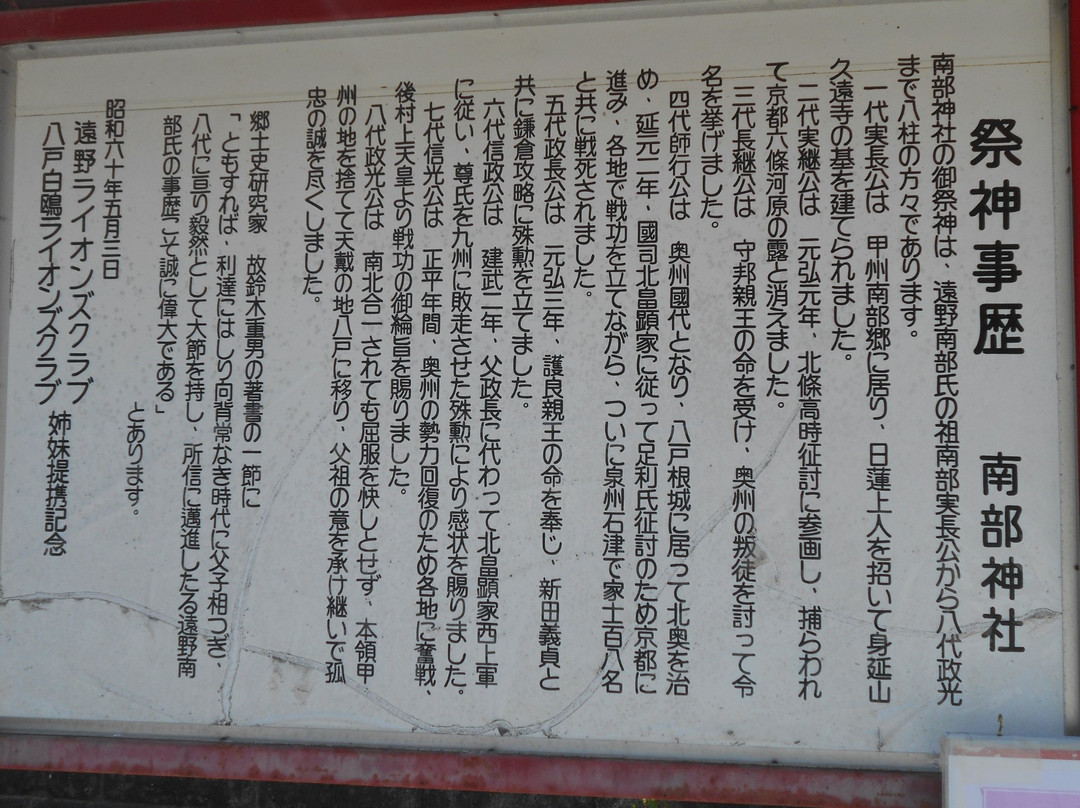 祭神事歴　南部神社
南部神社の御祭神は、遠野南部氏の祖南部実長公から八代政光
まで八柱の方々であります。
一代実長公は　甲州南部郷に居り、日蓮上人を招いて身延山
久遠寺の基を建てられました。
二代実継公は　元弘元年、北條高時征討に参画し、捕らわれ
て京都六條河原の露と消えました。
三代長継公は　守邦親王の命を受け、奥州の叛徒を討って令
名を挙げました。
四代師行公は　奥州國代となり、八戸根城に居って北奥を治
め、延元二年、國司北畠顕家に従って足利氏征討のため京都に
進み、各地で戦功を立てながら、ついに泉州石津で家士百八名
と共に戦死されました。
五代政長公は　元弘三年、護良親王の命を奉じ、新田義貞と
共に鎌倉攻略に殊勲を立てました。
六代信政公は　建武二年、父政長に代わって北畠顕家西上軍
に従い、尊氏を九州に敗走させた殊勲により感状を賜りました。
七代信光公は　正平年間、奥州の勢力回復のため各地に奮戦、
後村上天皇より戦功の御綸旨を賜りました。
八代政光公は　南北合一されても屈服を快しとせず、本領甲
州の地を捨てて天戴の地八戸に移り、父祖の意を承け継いで孤
忠の誠を尽くしました。
郷土史研究家　故鈴木重男の著書の一節に
「ともすれば、利達にはしり向背常なき時代に父子相つぎ、
八代に亘り毅然として大節を持し、所信に邁進したる遠野南
部氏の事歴こそ誠に偉大である」
とあります。
昭和六十年五月三日
遠野ライオンズクラブ
八戸白鷗ライオンズクラブ
姉妹提携記念